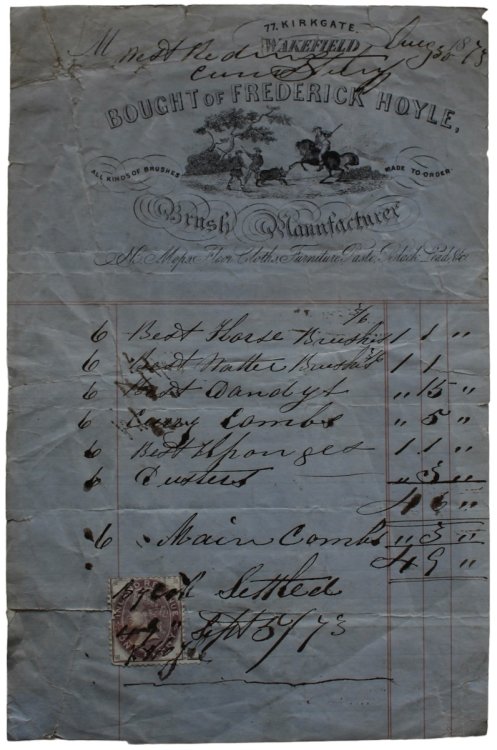 77. KIRKGATE.
WAKEFIELD Aug 30 1873
M West Riding
BOUGHT OF FREDERICK HOYLE,
ALL KINDS OF BRUSHES MADE TO ORDER
Brush Manufacturer
Mops, Floor Cloths, Furniture Paste, Black Lead, &c
3/6
6 Best Horse Brushes 1 1 "
6 Best Watter Brushes 1 1
6 Best Dandys " 15 "
6 Curry Combs " 5 "
6 Best Sponges 1 1 "
6 Dusters " 3 "
4 6 "
6 Main Combs " 3 "
4 9 "
By Cash Settled
Sept 5/73